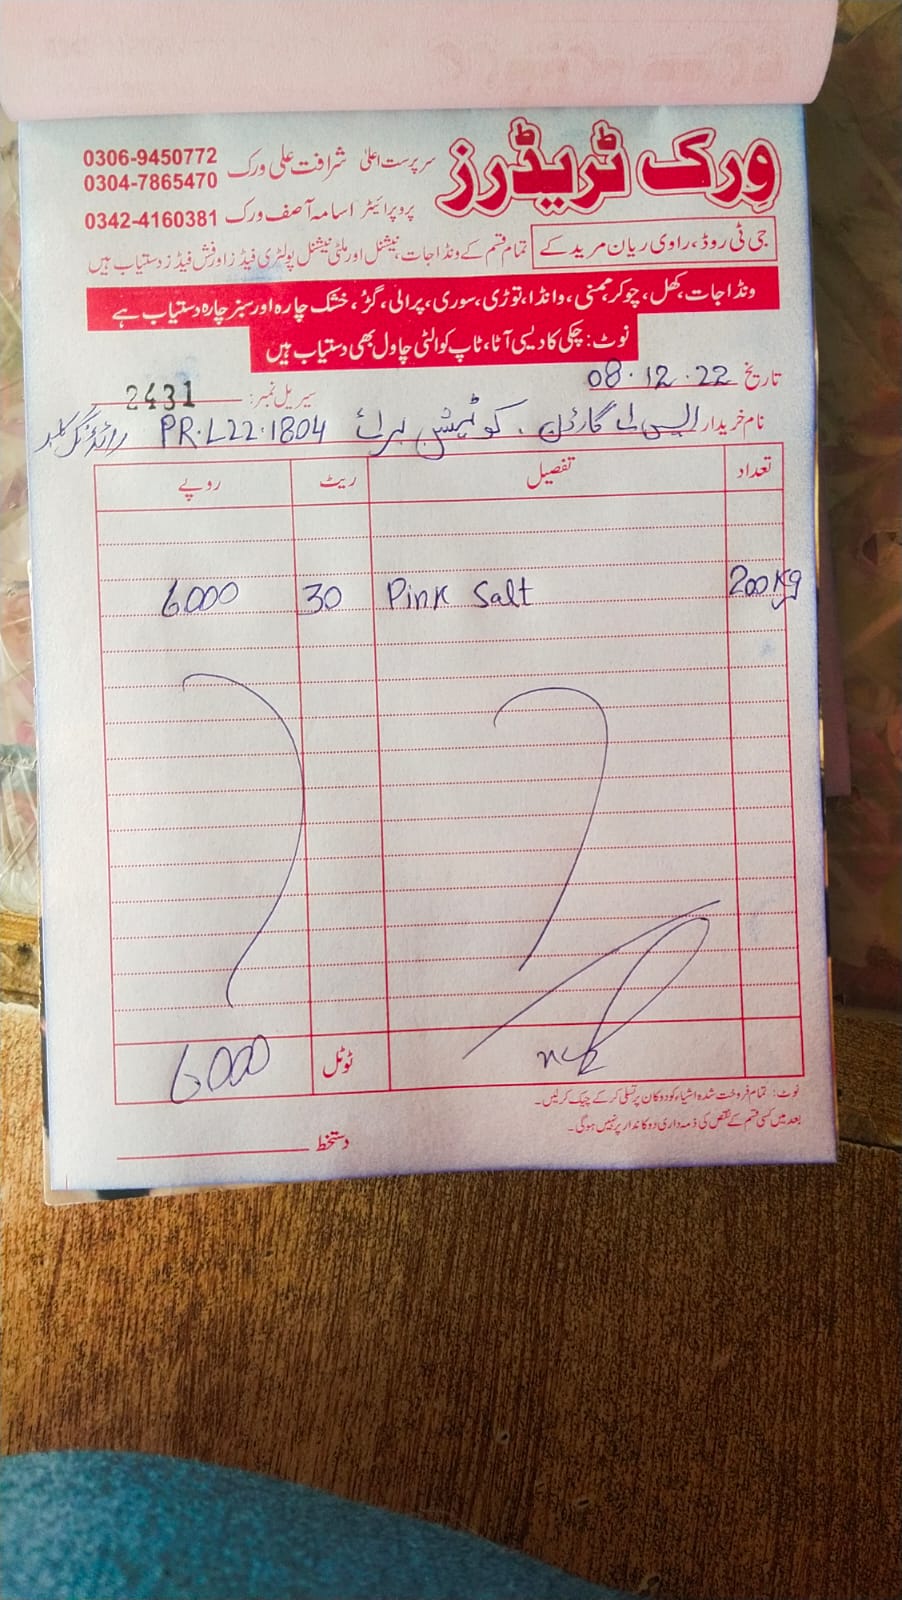 وِرک ٹریڈرز
سرپرست اعلیٰ شرافت علی ورک 0306-9450772
0304-7865470
پروپرائیٹر اسامہ آصف ورک 0342-4160381
جی ٹی روڈ، راوی ریان مریدکے
تمام قسم کے ونڈا جات، نیشنل اور ملٹی نیشنل پولٹری فیڈز اور فش فیڈز دستیاب ہیں
ونڈا جات، کھل، چوکر، ممنی، وانڈا، توڑی، سوری، پرالی، گڑ، خشک چارہ اور سبز چارہ دستیاب ہے
نوٹ: چکی کا دیسی آٹا، ٹاپ کوالٹی چاول بھی دستیاب ہیں
تاریخ 08.12.22
سیریل نمبر: 2431
نام خریدار ایس اے گارڈن . کوٹیشن برائے PR.L22.1804 رائڈنگ کلب
تعداد تفصیل ریٹ روپے
200 Kg Pink Salt 30 6000
ٹوٹل 6000
نوٹ: تمام فروخت شدہ اشیاء کو دوکان پر تسلی کر کے چیک کر لیں۔
بعد میں کسی قسم کے نقص کی ذمہ داری دوکاندار پر نہیں ہوگی۔
دستخط